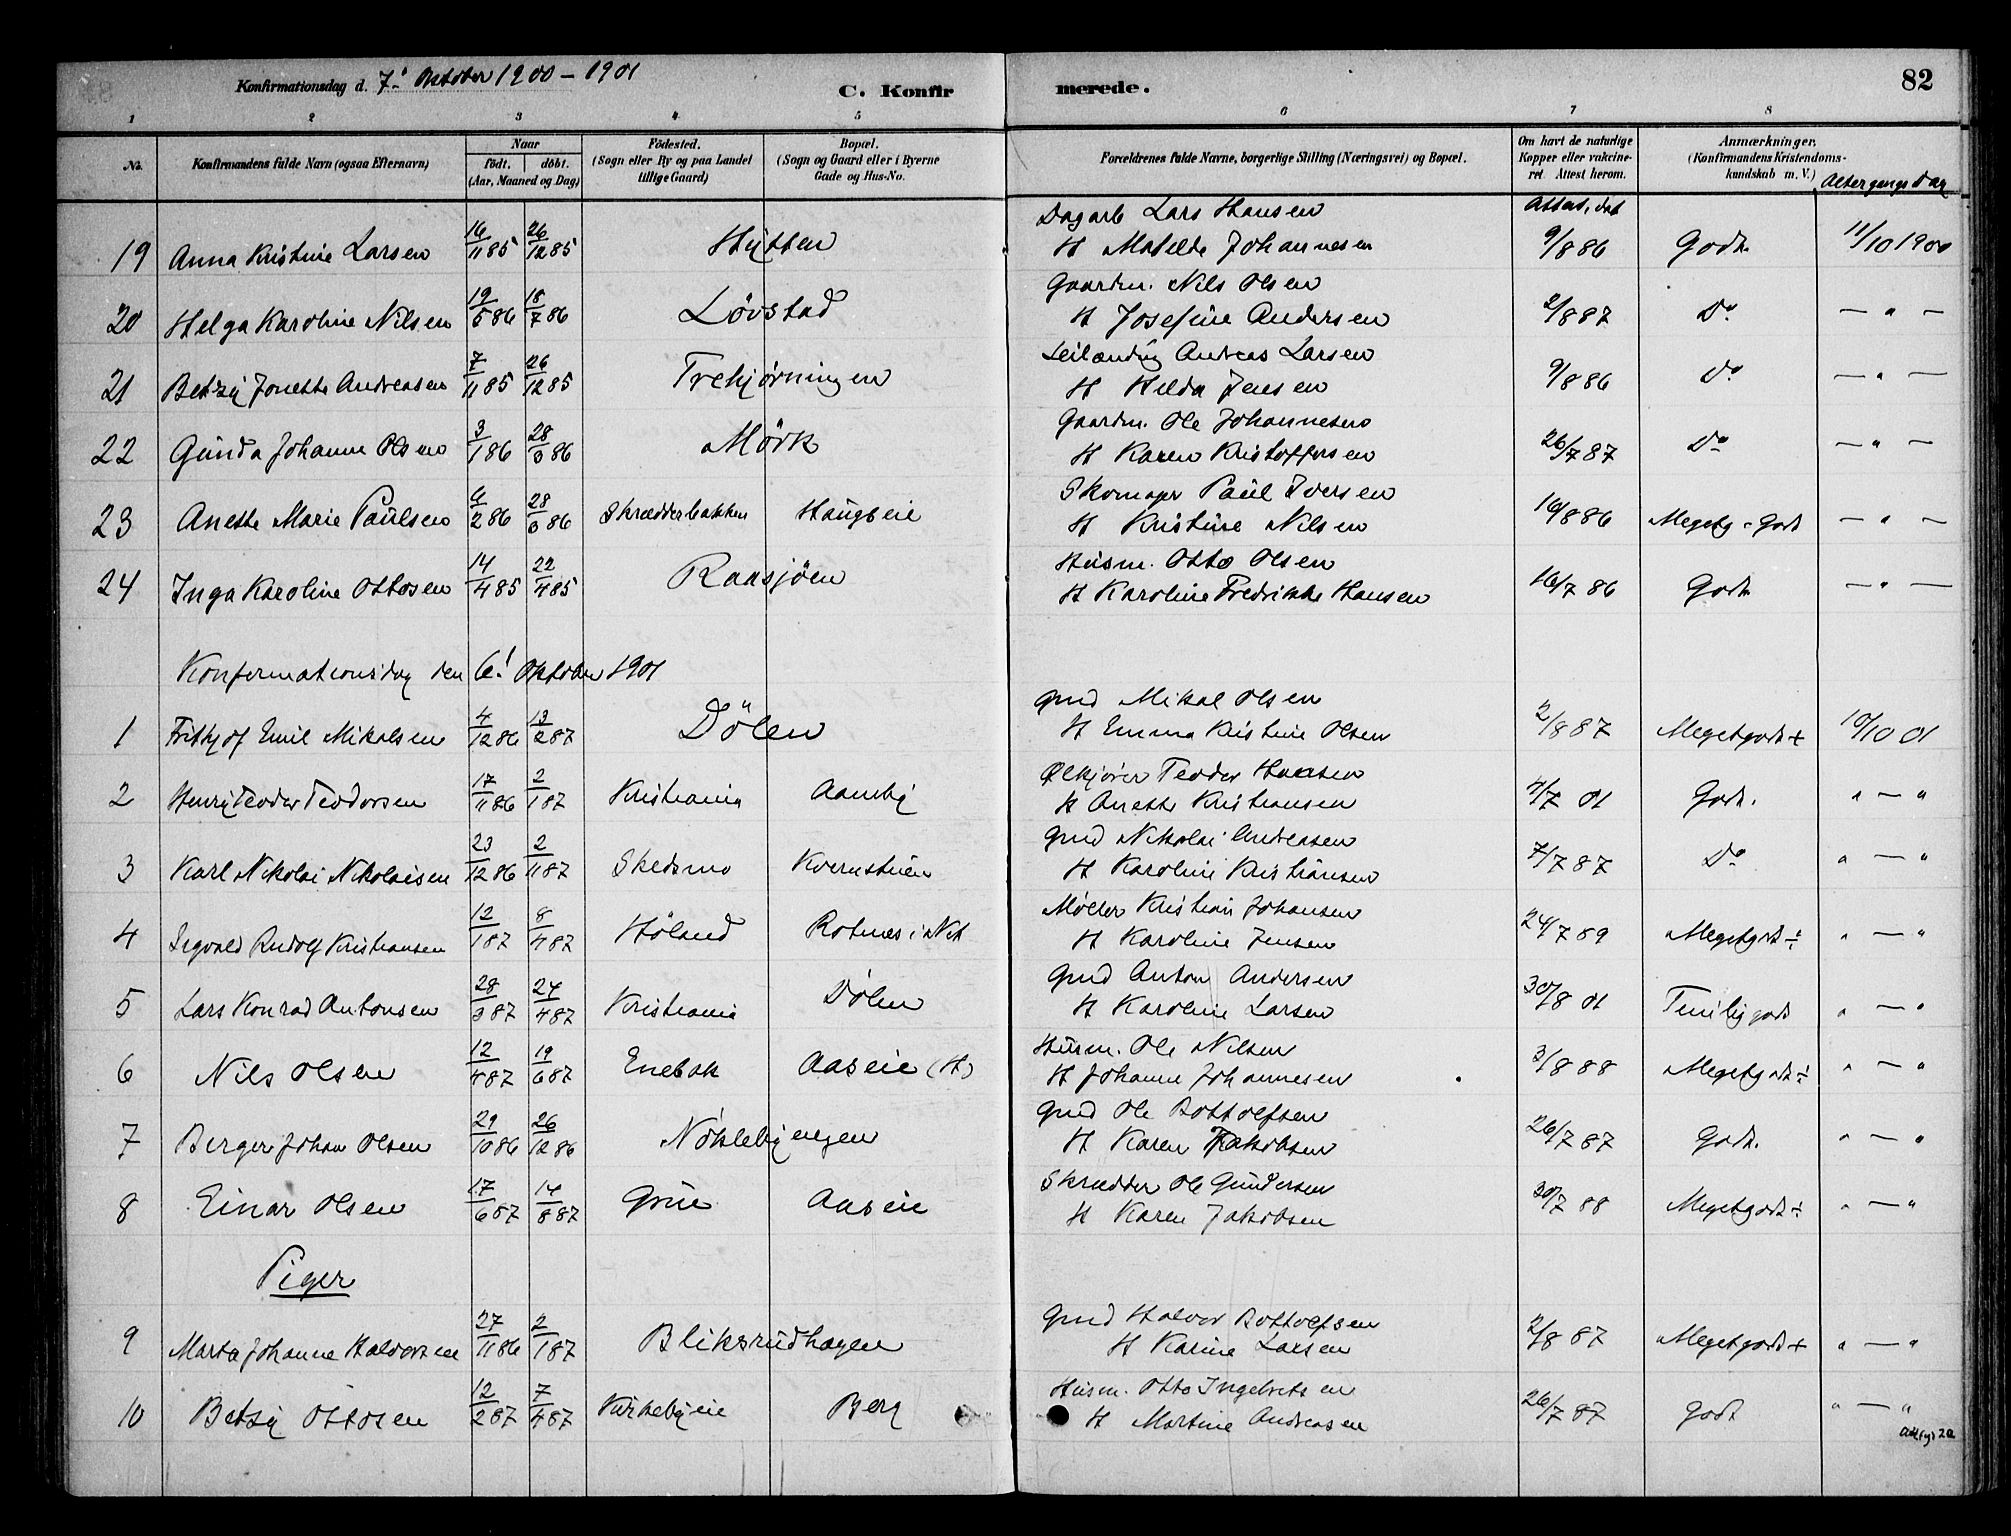 Konfirmationsdag d. 7de Oktober 1900 – 1901
C. Konfirmerede.
82
1 2 3 4 5 6 7 8
No. Konfirmandens fulde Navn (ogsaa Efternavn) Naar födt. döbt. (Aar, Maaned og Dag) Födested. (Sogn eller By og paa Landet tillige Gaard) Bopæl. (Sogn og Gaard eller i Byerne Gade og Hus-No. Forældrenes fulde Navne, borgerlige Stilling (Næringsvei) og Bopæl. Om havt de naturlige Kopper eller vakcineret. Attest herom. Anmærkninger. (Konfirmandens Kristendomskundskab m. V.) Altergangsdag
Attest, dat
19 Anna Kristine Larsen 16/11 85 26/12 85 Hytten Dagarb Lars Hansen
H Matelde Johannesen 9/8 86 Godt. 11/10 1900
20 Helga Karoline Nilsen 19/5 86 18/7 86 Lövstad Gaardm. Nils Olsen
H Josefine Andersen 2/8 87 Do – " –
21 Betzy Jonette Andreasen 7/11 85 26/12 85 Trekjørningen Leilænding Andreas Larsen
H Hilda Jensen 9/8 86 Do – " –
22 Gunda Johanne Olsen 3/1 86 28/3 86 Mörk Gaardm. Ole Johannesen
H Karen Kristoffersen 26/7 87 Do – " –
23 Anette Marie Paulsen 28/3 86 Skrædderbakken Haugseie Skomager Paul Iversen
H Kristine Nilsen 16/8 86 Meget godt – " –
24 Inga Karoline Ottosen 14/4 85 22/4 85 Raasjöen Husm. Otto Olsen
H Karoline Fredrikke Hansen 16/7 86 Godt – " –
Konfirmationsdag den 6! Oktober 1901
1 Frithjof Emil Mikalsen 4/12 86 13/2 87 Dölen Gmd Mikal Olsen
H Emma Kristine Olsen 2/8 87 Megetgodt + 10/10 01
2 Henry Teodor Teodorsen 17/11 86 2/1 87 Kristiania Aamby Ølkjører Teodor Hansen
H Anette Kristiansen 4/7 01 Godt. " – "
3 Karl Nikolai Nikolaisen 23/12 86 2/11 87 Skedsmo Kvernstuen Gmd Nikolai Andreasen
H Karoline Kristiansen 7/7 87 Do " – "
4 Ingvald Rudolf Kristiansen 12/1 87 8/4 87 Höland Rotnes i Nit Møller Kristian Johansen
H Karoline Jensen 24/7 89 Megetgodt ÷ " – "
5 Lars Konrad Antonsen 28/3 87 24/4 87 Kristiania Dölen Gmd Anton Andersen
H Karoline Larsen 30/8 01 Temlig godt " – "
6 Nils Olsen 12/4 87 19/6 87 Enebak Aaseie (H) Husm. Ole Nilsen
H Johanne Johannesen 3/8 88 Megetgodt ÷ " – "
7 Berger Johan Olsen 29/10 86 26/12 86 Nöklebyengen Gmd Ole Bottolfsen
H Karen Jakobsen 26/7 87 Godt. " – "
8 Einar Olsen 17/6 87 14/8 87 Grue Aaseie Skrædder Ole Gundersen
H Karen Jakobsen 30/7 88 Megetgodt ÷ " – "
Piger
9 Marta Johanne Halvorsen 27/11 86 2/1 87 Bliksrudhagen Gmd Halvor Bottolfsen
H Karine Larsen 2/8 87 Megetgodt + " – "
10 Betzy Ottosen 12/2 87 7/4 87 Kirkebyeie Berg Husm. Otto Ingebretsen
H Martine Andreasen 26/7 87 Godt " – "